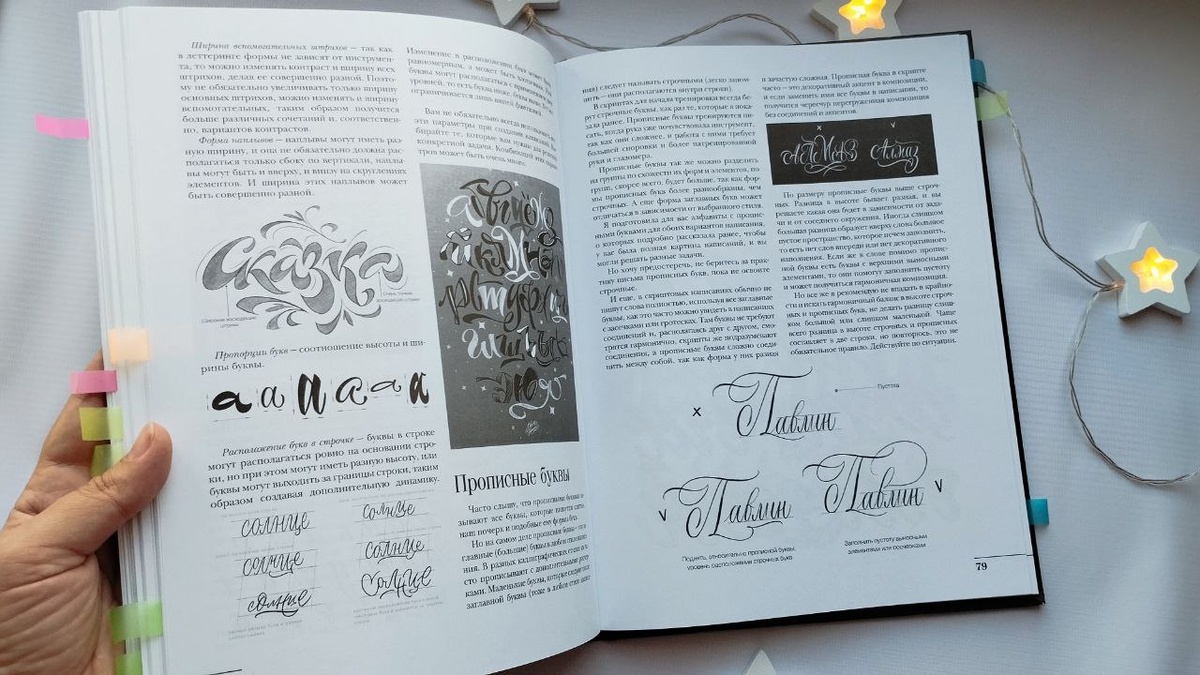 Ширина вспомогательных штрихов — так как
в леттеринге формы не зависят от инструмен-
та, то можно изменять контраст и ширину всех
штрихов, делая ее совершенно разной. Поэто-
му не обязательно увеличивать только ширину
основных штрихов, можно изменять и ширину
вспомогательных, таким образом получится
больше различных сочетаний и, соответствен-
но, вариантов контрастов.
Форма наплывов — наплывы могут иметь раз-
ную ширину, и она не обязательно должна рас-
полагаться только сбоку по вертикали, наплы-
вы могут быть и вверху, и внизу на скруглениях
элементов. И ширина этих наплывов может
быть совершенно разной.
Сказка
Пропорции букв — соотношение высоты и ши-
рины буквы.
а а а а а а а
Расположение букв в строчке — буквы в строке
могут располагаться ровно на основании стро-
ки, но при этом могут иметь разную высоту, или
буквы могут выходить за границы строки, таким
образом создавая дополнительную динамику.
солнце солнце
солнце солнце
солнце солнце
Изменение в расположении букв может быть
равномерным, а может быть
буквы могут располагаться с
уровней, то есть буква ниже, буква выше,
ограничивается лишь вашей фантазией.
Вам не обязательно всегда использовать все
эти параметры при создании надписей.
бирайте те, которые вам нужны для решения
конкретной задачи. Комбинаций этих парамет-
тров может быть очень много.
Прописные буквы
Часто слышу, что прописными буквами на-
зывают все буквы, которые пишутся
наш почерк и подобные ему формы букв.
Но на самом деле прописные буквы — это
главные (большие) буквы в любом
ния. В разных каллиграфических стилях их ча-
сто прописывают с дополнительными
ками. Маленькие буквы, которые следуют за
заглавной буквы (тоже в любом стиле
ния) следует называть строчными (легко запом-
нить — они располагаются внутри строки).
В скриптах для начала тренировки всегда бе-
рут строчные буквы, как раз те, которые я пока-
зала ранее. Прописные буквы тренируются пи-
сать, когда рука уже почувствовала инструмент,
так как они сложнее, и работа с ними требует
большей сноровки и более натренированной
руки и глазомера.
Прописные буквы так же можно разделить
на группы по схожести их форм и элементов, но
групп, скорее всего, будет больше, так как фор-
мы прописных букв более разнообразны, чем
строчных. А еще форма заглавных букв может
отличаться в зависимости от выбранного стиля.
Я подготовила для вас алфавиты с пропис-
ными буквами для обоих вариантов написания,
о которых подробно рассказала ранее, чтобы
у вас была полная картина написаний, и вы
могли решать разные задачи.
Но хочу предостеречь, не беритесь за прак-
тику письма прописных букв, пока не освоите
строчные.
И еще, в скриптовых написаниях обычно не
пишут слова полностью, используя все заглавные
буквы, как это часто можно увидеть в написаниях
с засечками или гротесках. Там буквы не требуют
соединений и, располагаясь друг с другом, смо-
трятся гармонично, скрипты же подразумевают
соединения, а прописные буквы сложно соеди-
нить между собой, так как форма у них разная
и зачастую сложная. Прописная буква в скрипте
часто — это декоративный акцент в композиции,
и если заменить ими все буквы в написании, то
получится чересчур перегруженная композиция
без соединений и акцентов.
По размеру прописные буквы выше строч-
ных. Разница в высоте бывает разная, и вы
решаете какая она будет в зависимости от зада-
чи и от соседнего окружения. Иногда слишком
большая разница образует вверху слова большое
пустое пространство, которое нечем заполнить,
то есть нет слов впереди или нет декоративного
наполнения. Если же в слове помимо пропис-
ной буквы есть буквы с верхними выносными
элементами, то они помогут заполнить пустоту
и может получиться гармоничная композиция.
Но все же я рекомендую не впадать в крайно-
сти и искать гармоничный баланс в высоте строч-
ных и прописных букв, не делать разницу слиш-
ком большой или слишком маленькой. Чаще
всего разница в высоте строчных и прописных
составляет в две строки, но повторюсь, это не
обязательное правило. Действуйте по ситуации.
x Павлин Пустота
v Павлин Павлин v
Поднять, относительно прописной буквы,
уровень расположения строчных букв
Заполнять пустоту выносными
элементами или росчерками
79